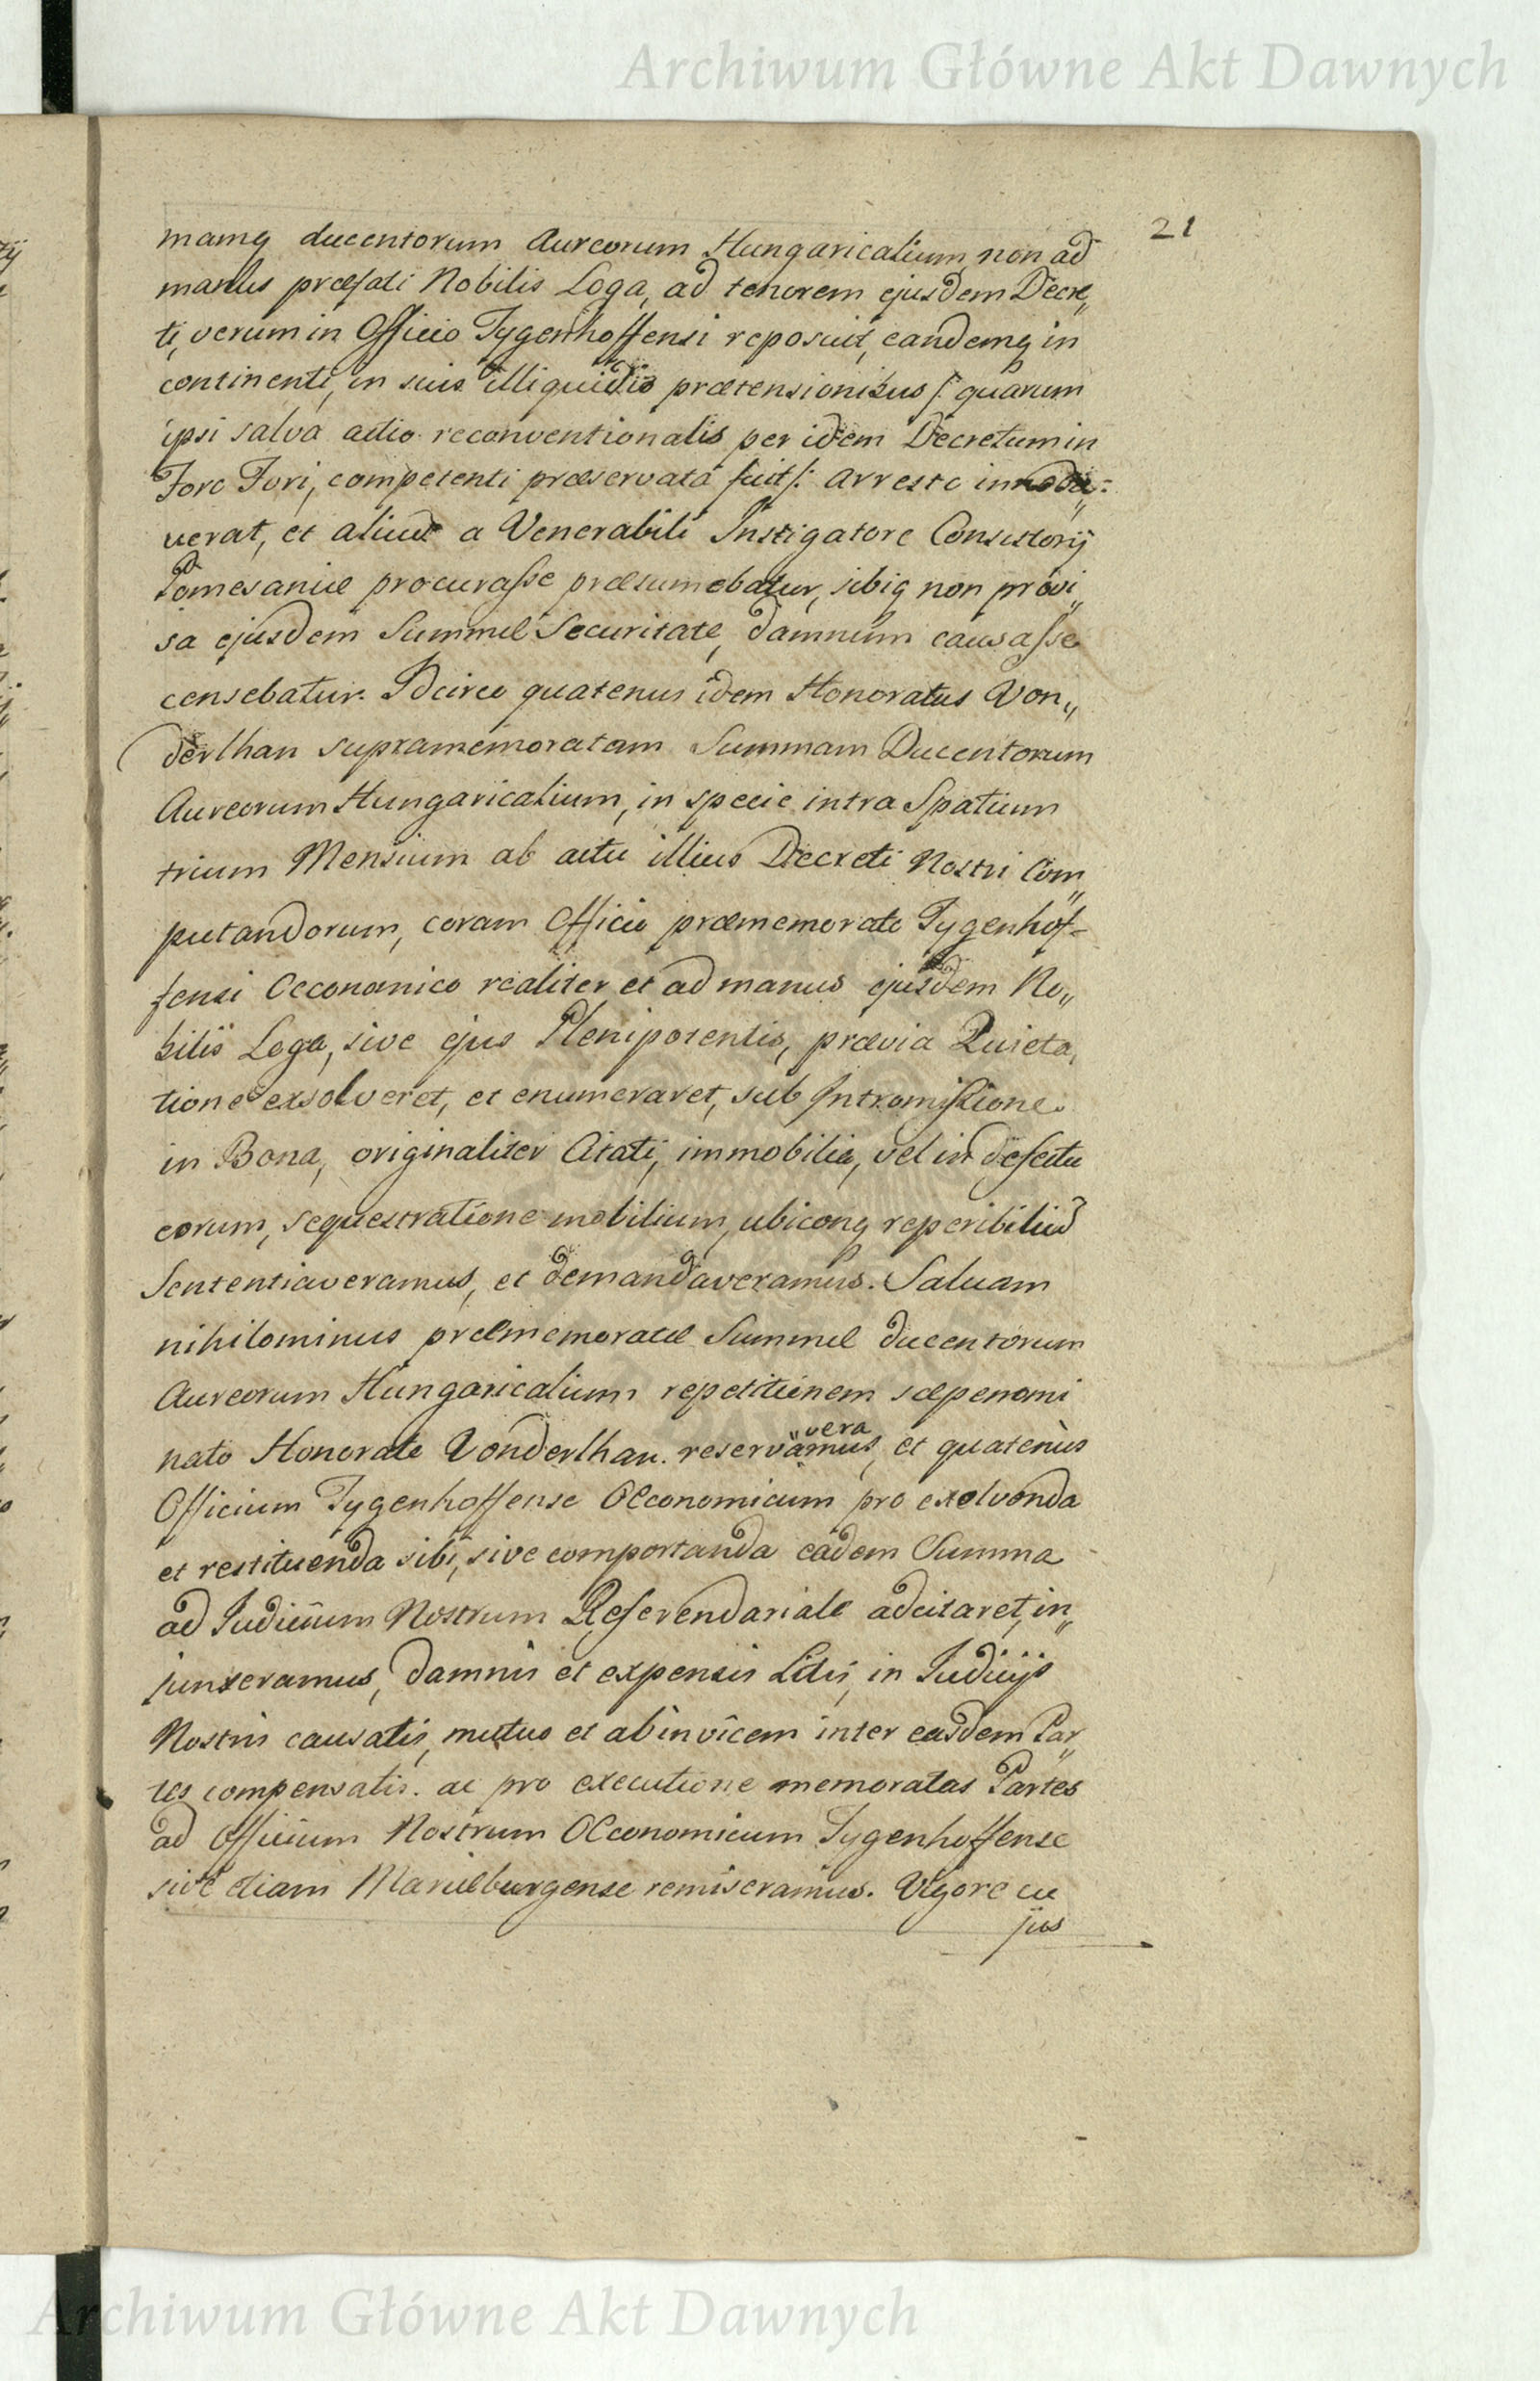 Archiwum Główne Akt Dawnych
21
mamq ducentorum Aureorum Hungaricalium non ad
manus præfati Nobilis Loga, ad tenorem ejusdem Decre„
ti, verum in Officio Tygenhoffensi reposuit, eandemq in
continenti, in suis illiquidis prætensionibus /: quarum
ipsi salva actio reconventionalis per idem Decretum in
Foro Fori, competenti præservata fuit :/ arresto innoda„
verat, et aliud a Venerabili Instigatore Consistorij
Pomesaniæ procurasse præsumebatur, sibiq non provi„
sa ejusdem Summæ Securitate, damnum causasse
censebatur. Idcirco quatenus idem Honoratus Von„
derlhan supramemoratam Summam Ducentorum
Aureorum Hungaricalium, in specie intra Spatium
trium Mensium ab actu illius Decreti Nostri Com„
putandorum, coram Officio præmemorato Tygenhof=
fensi Oeconomico realiter et ad manus ejusdem No„
bilis Loga, sive ejus Plenipotentis, prævia Quieta„
tione exsolveret, et enumeraret, sub Intromissione
in Bona, originaliter Citati, immobilia, vel in defectu
eorum, sequestratione mobilium, ubicunq reperibilium
Sententiaveramus, et demandaveramus. Salvam
nihilominus præmemoratæ Summæ ducentorum
Aureorum Hungaricalium repetitionem sæpenomi
nato Honorato Vonderlhan reservamus, et quatenus
vera
Officium Tygenhoffense Œconomicum pro exolvenda
et restituenda sibi, sive comportanda eadem Summa
ad Judicium Nostrum Referendariale adcitaret, in„
junxeramus, damnis et expensis Litis, in Judicijs
Nostris causatis, mutuo et ab invicem inter easdem Par„
tes compensatis. ac pro executione memoratas Partes
ad Officium Nostrum Œconomicum Tygenhoffense
sive etiam Mariæburgense remiseramus. Vigore cu
jus
Archiwum Główne Akt Dawnych